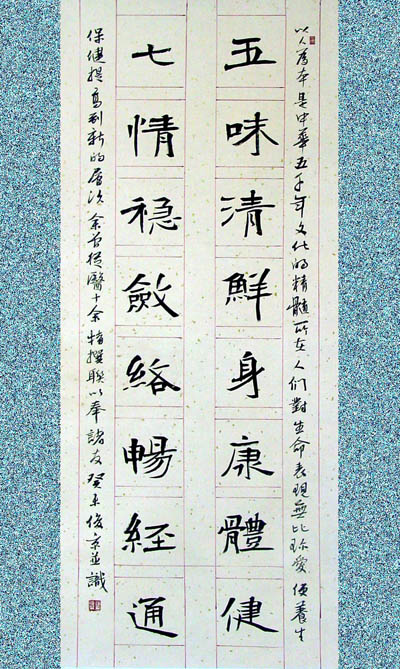 以人為本是中華五千年文化的精髓所在人们對生命表現無比珍愛使養生
五味清鮮身康體健
七情稳斂絡暢経通
保健提高到新的層次余昔從醫十余特撰聯以奉諸友癸未俊京並識